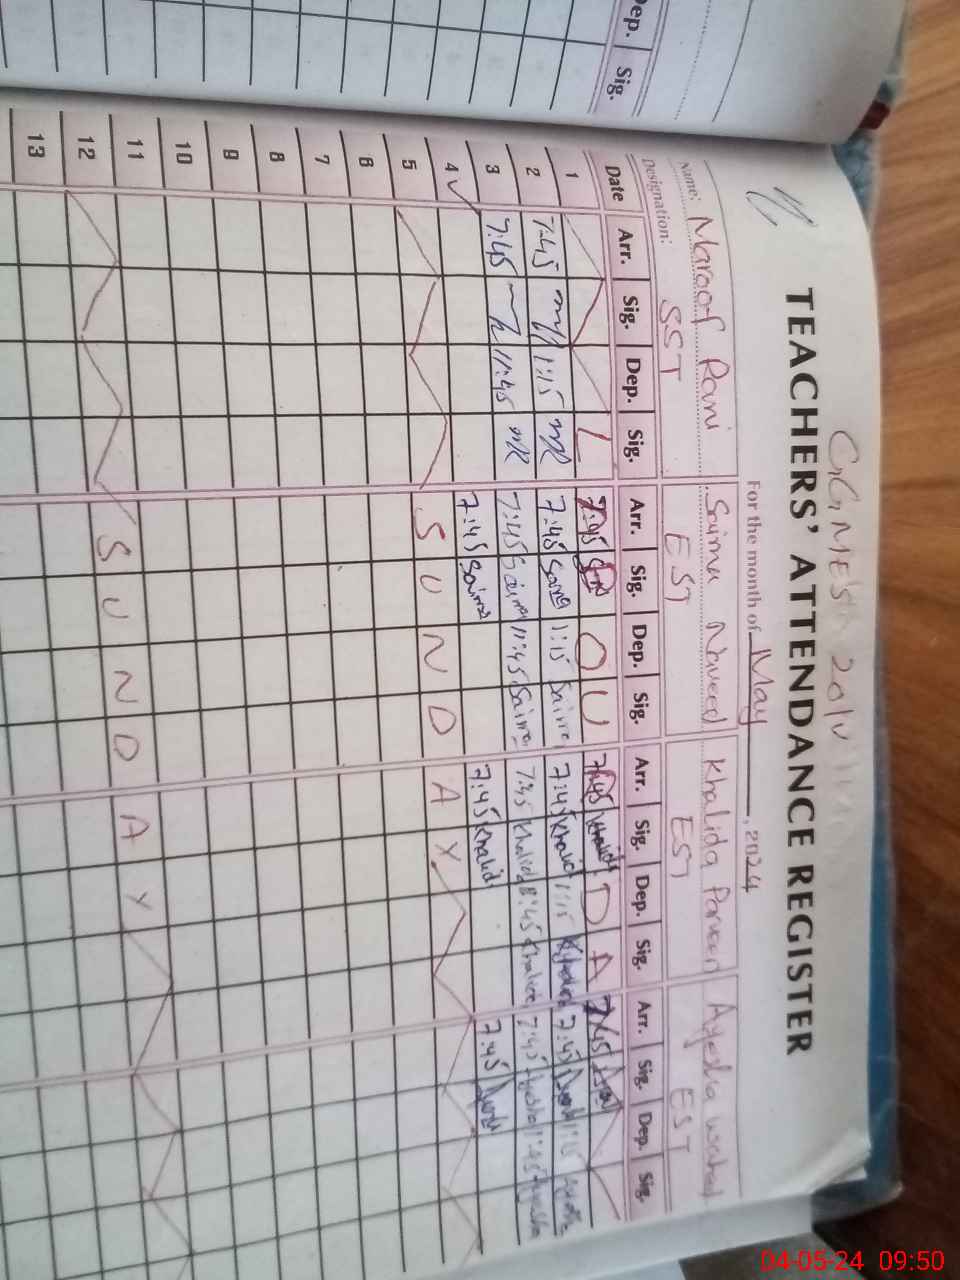 TEACHERS' ATTENDANCE REGISTER
For the month of May, 2024
Name: Maroof Rani Saima Naveed Khalida Parveen Ayesha
Designation: SST EST EST EST
Date Arr. Sig. Dep. Sig. Arr. Sig. Dep. Sig. Arr. Sig. Dep. Sig. Arr. Sig. Dep. Sig.
1 L 7:45 O U 7:45 D A 7:45
2 7:45 1:15 7:45 Saima 1:15 Saima 7:45 Khalida 1:15 7:45 1:15 Ayesha
3 7:45 11:45 7:45 Saima 11:45 Saima 7:45 Khalida 11:45 Khalida 7:45 Ayesha 11:45 Ayesha
4 7:45 Saima 7:45 Khalida 7:45
5 S U N D A Y
6
7
8
9
10
11
12 S U N D A Y
13
Dep. Sig.
04-05-24 09:50